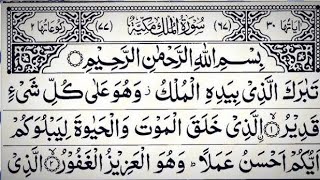 اٰیَاتُهَا ٣٠ (٦٧) سُوْرَةُ الْمُلْكِ مَكِّيَّةٌ (٧٧) رُكُوْعَاتُهَا ٢
بِسْمِ اللّٰهِ الرَّحْمٰنِ الرَّحِيْمِ
تَبٰرَكَ الَّذِيْ بِيَدِهِ الْمُلْكُ ز وَهُوَ عَلٰى كُلِّ شَيْءٍ
قَدِيْرُ ۝١ الَّذِيْ خَلَقَ الْمَوْتَ وَالْحَيٰوةَ لِيَبْلُوَكُمْ
اَيُّكُمْ اَحْسَنُ عَمَلًا ؕ وَهُوَ الْعَزِيْزُ الْغَفُوْرُ ۝٢ الَّذِيْ